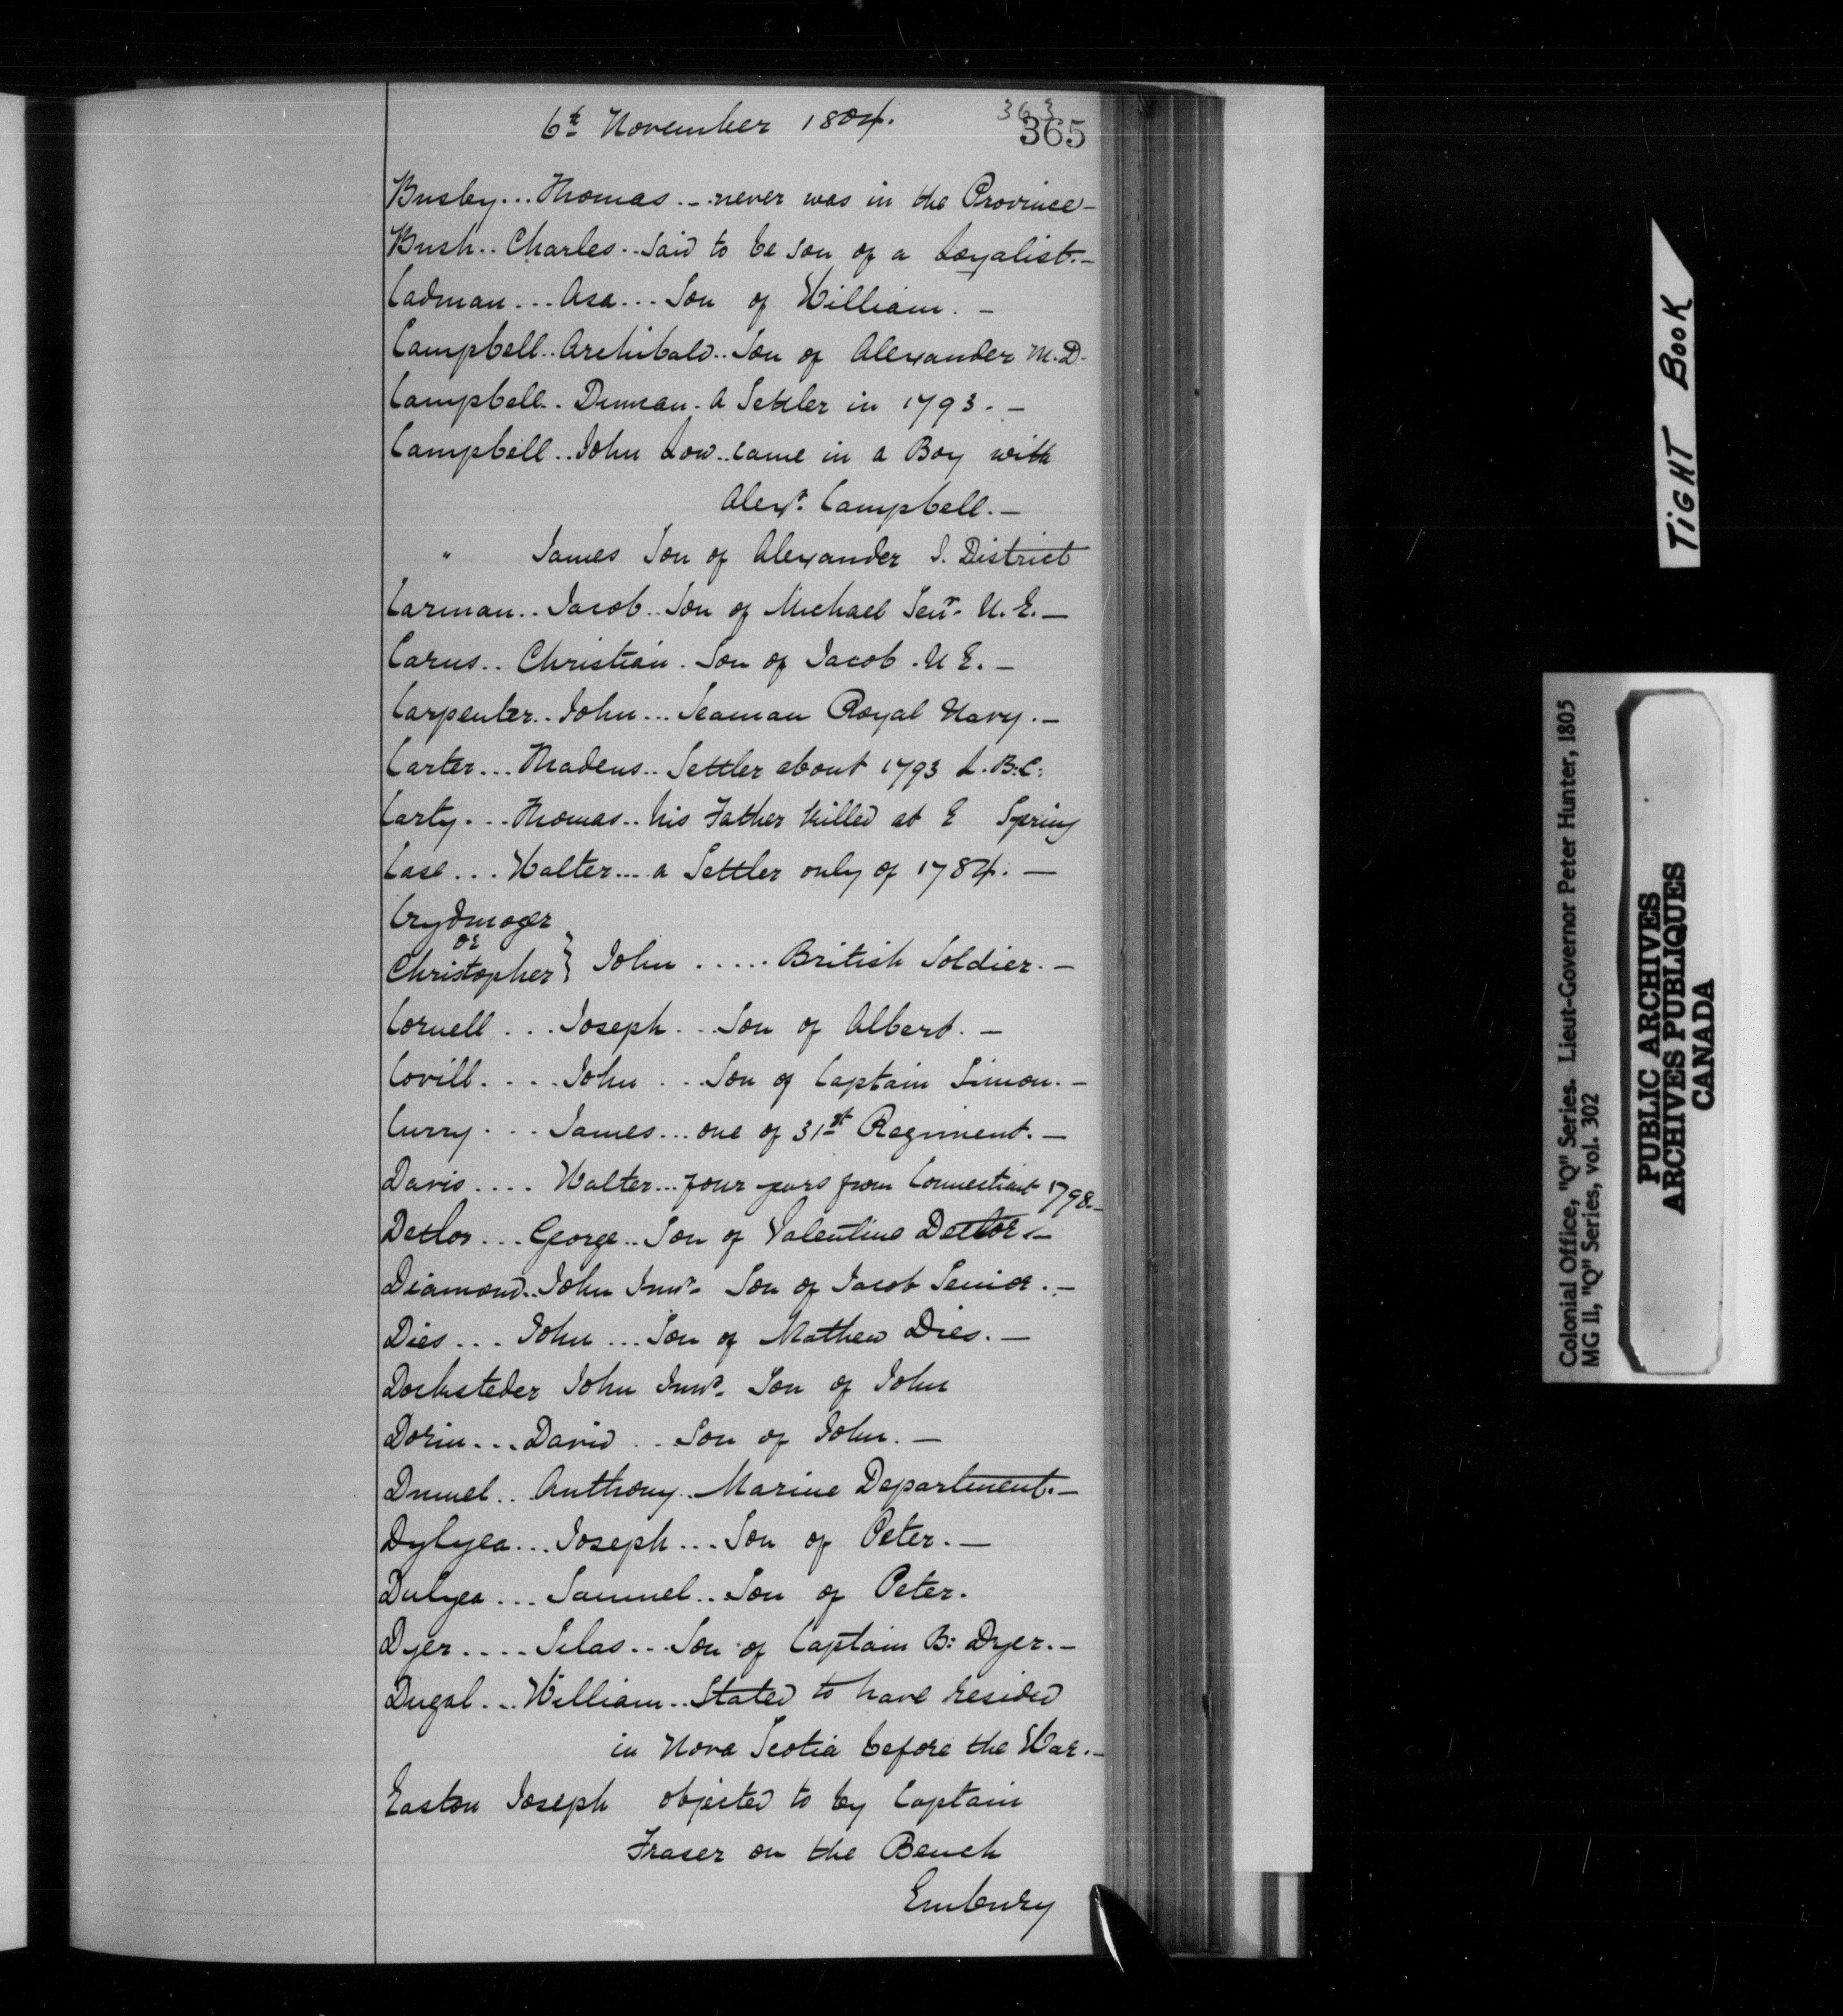 6th November 1804.
363
365
Busby... Thomas.. never was in the Province-
Bush.. Charles.. Said to be son of a Loyalist.-
Cadman... Asa... Son of William. -
Campbell.. Archibald.. Son of Alexander M.D.
Campbell.. Duncan. A Settler in 1793. -
Campbell.. John Low.. came in a Boy with
Alexr. Campbell. -
" James Son of Alexander J. District
Carman.. Jacob.. Son of Michael Senr. U.E. -
Carns.. Christian. Son of Jacob. U E. -
Carpenter.. John... Seaman Royal Navy. -
Carter... Thadeus.. Settler about 1793 L.B.C.
Carty... Thomas.. his Father killed at E Spring
Case... Walter... a Settler only of 1784. -
Crydmoger
or
Christopher } John ..... British Soldier. -
Cornell... Joseph... Son of Albert. -
Covill.... John... Son of Captain Simon. -
Curry... James... one of 31st Regiment. -
Davis.... Walter... four years from Connecticut 1798.-
Detlor... George.. Son of Valentine Detlor. -
Diamond.. John Junr. Son of Jacob Senior. -
Dies... John... Son of Mathew Dies. -
Dochsteder John Junr. Son of John
Dorin... David.. Son of John. -
Dumel.. Anthony.. Marine Department. -
Dylyea... Joseph... Son of Peter. -
Dulyea... Samuel.. Son of Peter.
Dyer.... Silas... Son of Captain B: Dyer. -
Dugal... William.. Stated to have resided
in Nova Scotia before the War. -
Easton Joseph objected to by Captain
Fraser on the Bench
Embury
TIGHT BOOK
Colonial Office, "Q" Series. Lieut-Governor Peter Hunter, 1805
MG 11, "Q" Series, vol. 302
PUBLIC ARCHIVES
ARCHIVES PUBLIQUES
CANADA